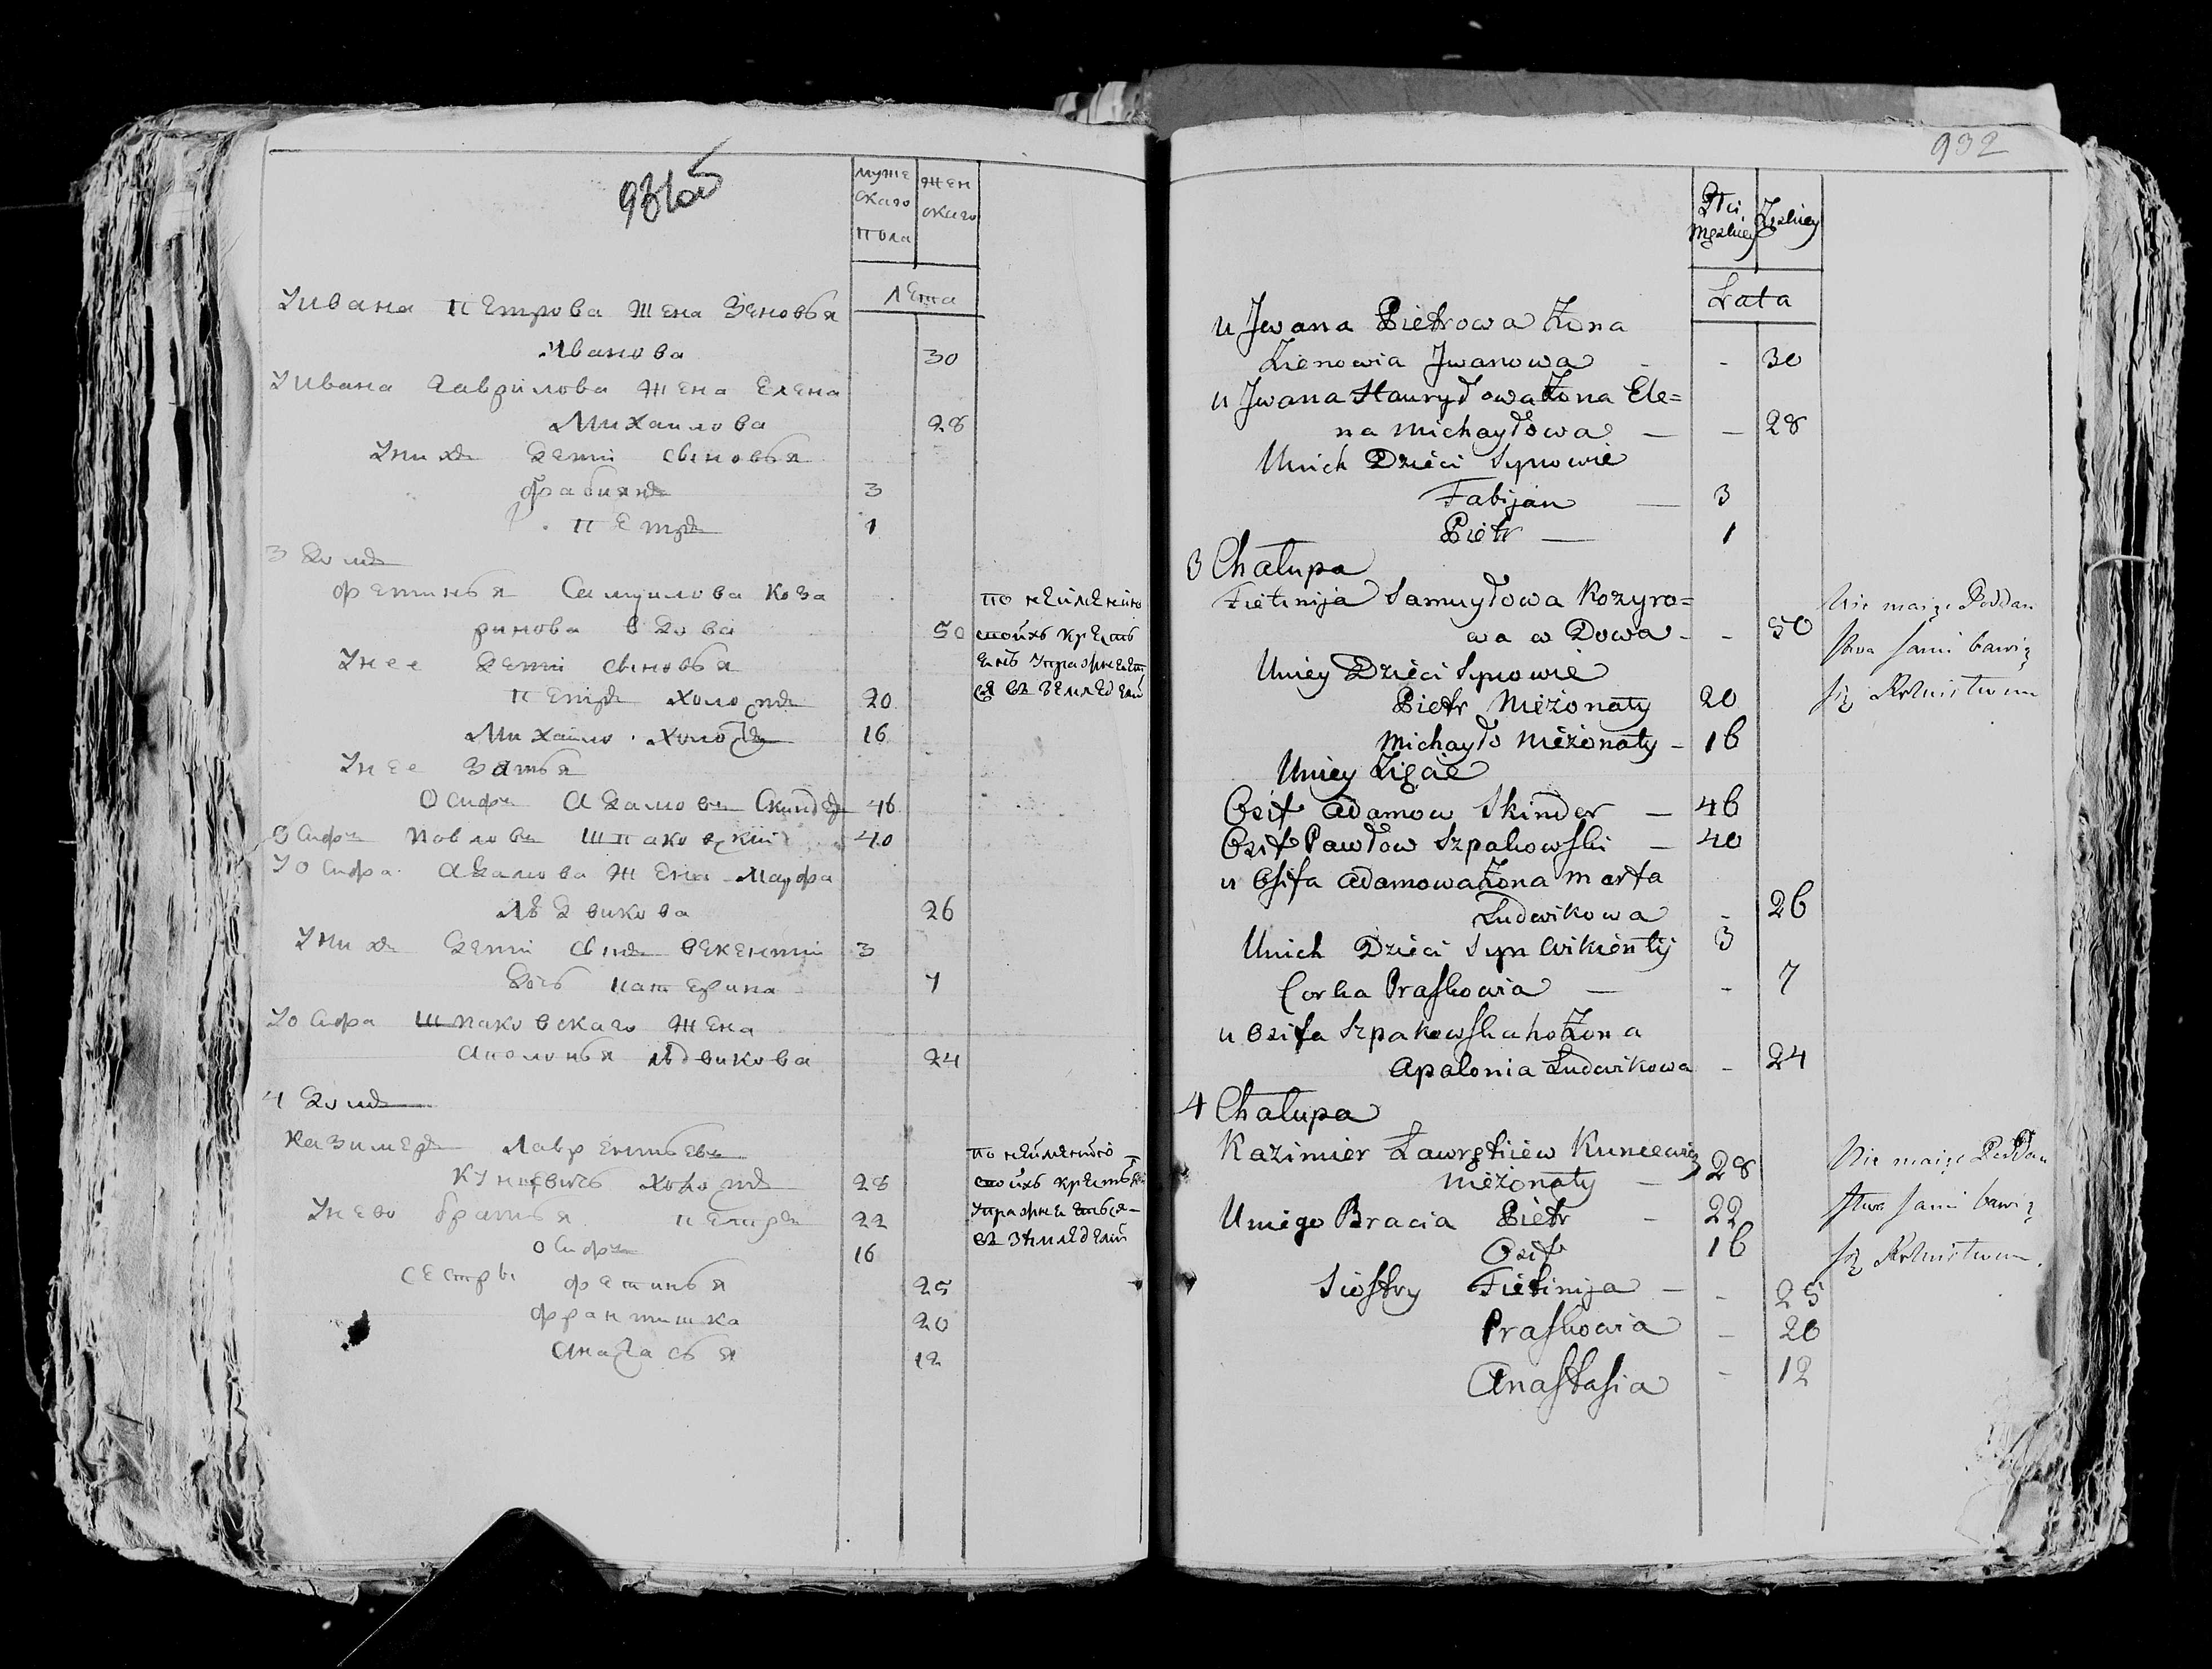 931об
муже
скаго
пола
жен
скаго
Лета
У Ивана Петрова жена Зеновья
Иванова 30
У Ивана Гаврилова жена Елена
Михаилова 28
У них дети сыновья
Фабиянъ 3
Петръ 1
3 Домъ
Фетинья Самуилова Коза
ринова вдова 50
У нее дети сыновья
Петръ холостъ 20
Михайло холостъ 16
У нее зятья
Осифъ Адамовъ Скиндеръ 46
Осифъ Павловъ Шпаковский 40
У Осифа Адамова жена Марфа
Лѣдвикова 26
У них дети сынъ Векентий 3
дочь Катерина 7
У Осифа Шпаковскаго жена
Аполонья Лѣдвикова 24
4 Домъ
Казимеръ Лаврентьевъ
Куневичь холостъ 28
У нево братья Петръ 22
Осифъ 16
сестры Фетинья 25
Франтишка 20
Анастасья 12
по неимению
своихъ кресть
енъ упражняет
ся въ земледелий
по неимению
своихъ
упражняеться
въ земледелий
932
Płci
Męzkiey
Zezkiey
Lata
u Jwana Pietrowa Żona
Zienowia Jwanowa - - 30
u Jwana Hauryłowa Żona Ele=
na Michayłowa — — 28
Unich Dzieci Synowie
Fabijan — 3
Pietr — 1
3 Chałupa
Fietinija Samuyłowa Kozyro=
wa w Dowa - - 50
Uniey Dzieci Synowie
Pietr Nieżonaty 20
Michayło Nieżonaty - 16
Uniey Zigcie
Osif Adamow Skinder — 46
Osif Pawłow Szpakowski — 40
u Osifa Adamowa Żona Marta
Ludwikowa - 26
Unich Dzieci Syn Wikientij 3
Corka Praskowia — - 7
u Osifa Szpakowskaho Żona
Apalonia Ludwikowa - 24
4 Chałupa
Kazimier Ławrętiiew Kuncewicz
nieżonaty — 28
Uniego Bracia Pietr - 22
Osif 16
Siostry Fietinija — - 25
Praskowia - 20
Anastasia - 12
Nie maiąc Poddan
stwa sami bawią
się Rolnistwem
Nie maiąc Poddan
stwa sami bawią
się Rolnistwem.